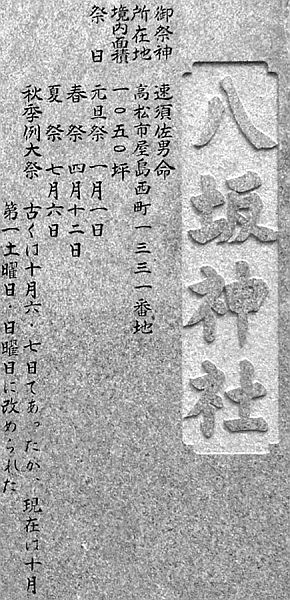 八坂神社
御祭神 速須佐男命
所在地 高松市屋島西町一三三一番地
境内面積 一〇五〇坪
祭日 元旦祭 一月一日
春祭 四月十二日
夏祭 七月六日
秋季例大祭 古くは十月六・七日であったが、現在は十月
第一土曜日・日曜日に改められた